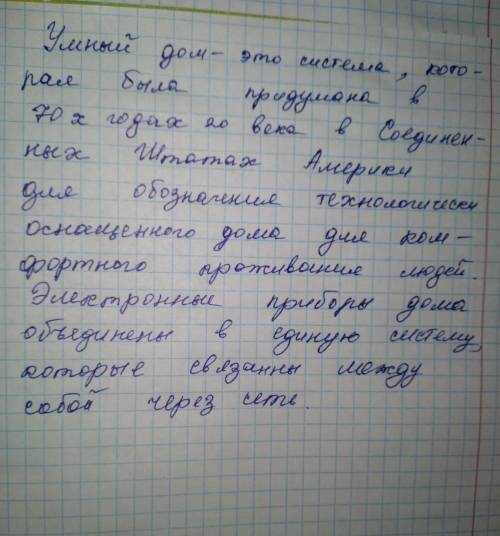 Умный дом- это система, кото-
рая была придумана в
70х годах 20 века в Соединен-
ных Штатах Америки
для обозначения технологически
оснащенного дома для ком-
фортного проживания людей.
Электронные приборы дома
объединены в единую систему,
которые связанны между
собой через сеть.